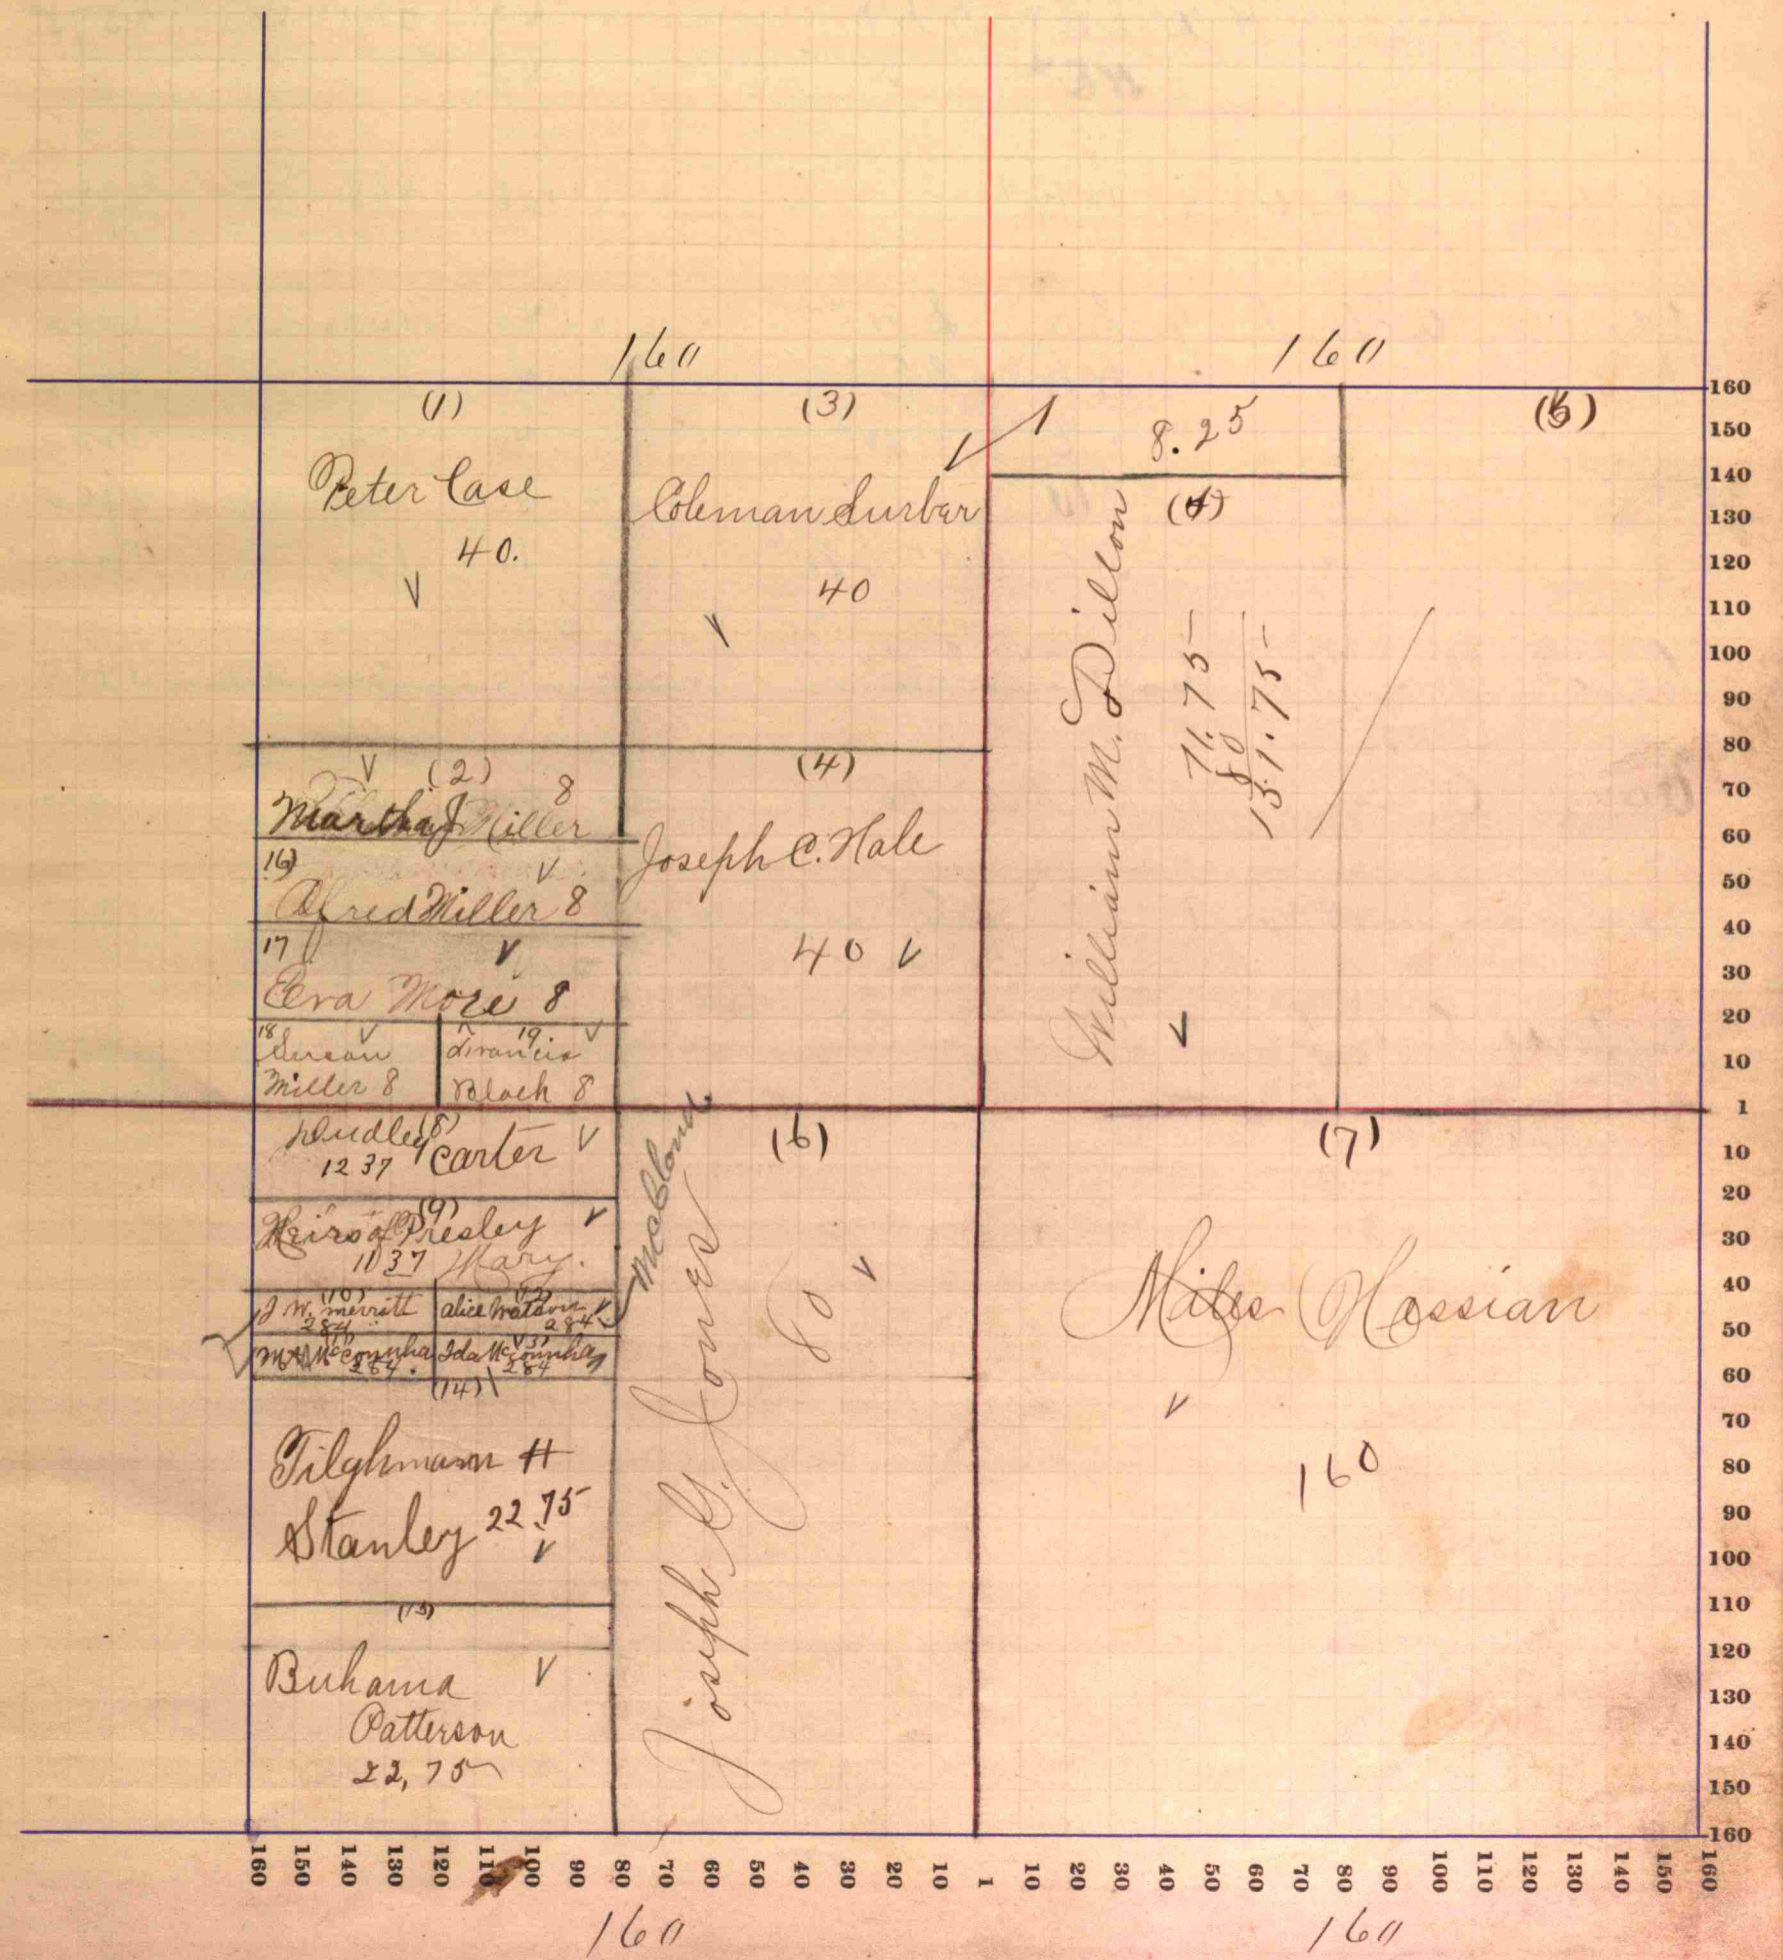 160
160
(1)
Peter Case
40.
V
(3)
Coleman Surber
40
V
8.25
(5)
William M. Dillon
71.75
80
151.75
V
(2)
V
8
Martha J Miller
16)
V
Alfred Miller 8
17
V
Eva More 8
18
V
Miller 8
19
V
Francis
Black 8
(4)
Joseph C. Hale
40 V
(8)
Dudley Carter V
12 37
(9)
Heirs of Presley V
Mary.
37
(10)
J W. Merritt
284
alice Watson V
284
284.
Ida McConnhay
284
(14)
Tilghmann H
Stanley 22.75
V
(15)
Buhama V
Patterson
22,75
(6)
Joseph G. Jones
80
V
(7)
Miles Hessian
V
160
160
150
140
130
120
110
100
90
80
70
60
50
40
30
20
10
1
10
20
30
40
50
60
70
80
90
100
110
120
130
140
150
160
160 150 140 130 120 110 100 90 80 70 60 50 40 30 20 10 1 10 20 30 40 50 60 70 80 90 100 110 120 130 140 150 160
160
160